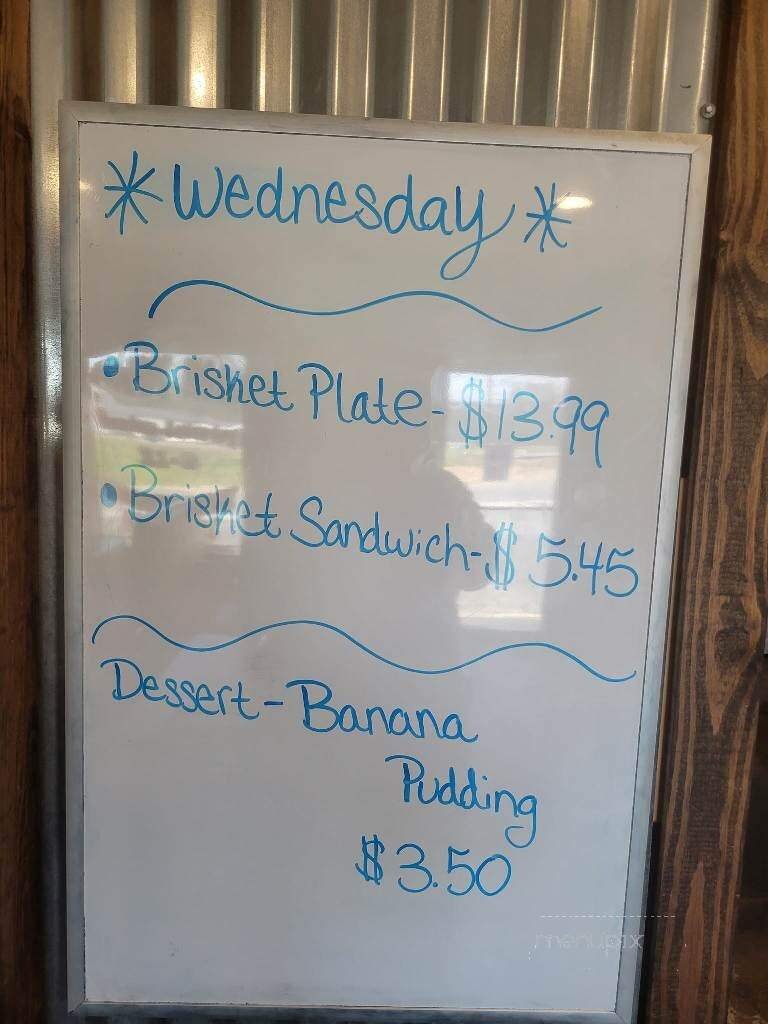 *Wednesday*
• Brisket Plate - $13.99
• Brisket Sandwich - $5.45
Dessert - Banana
Pudding
$3.50
menupix